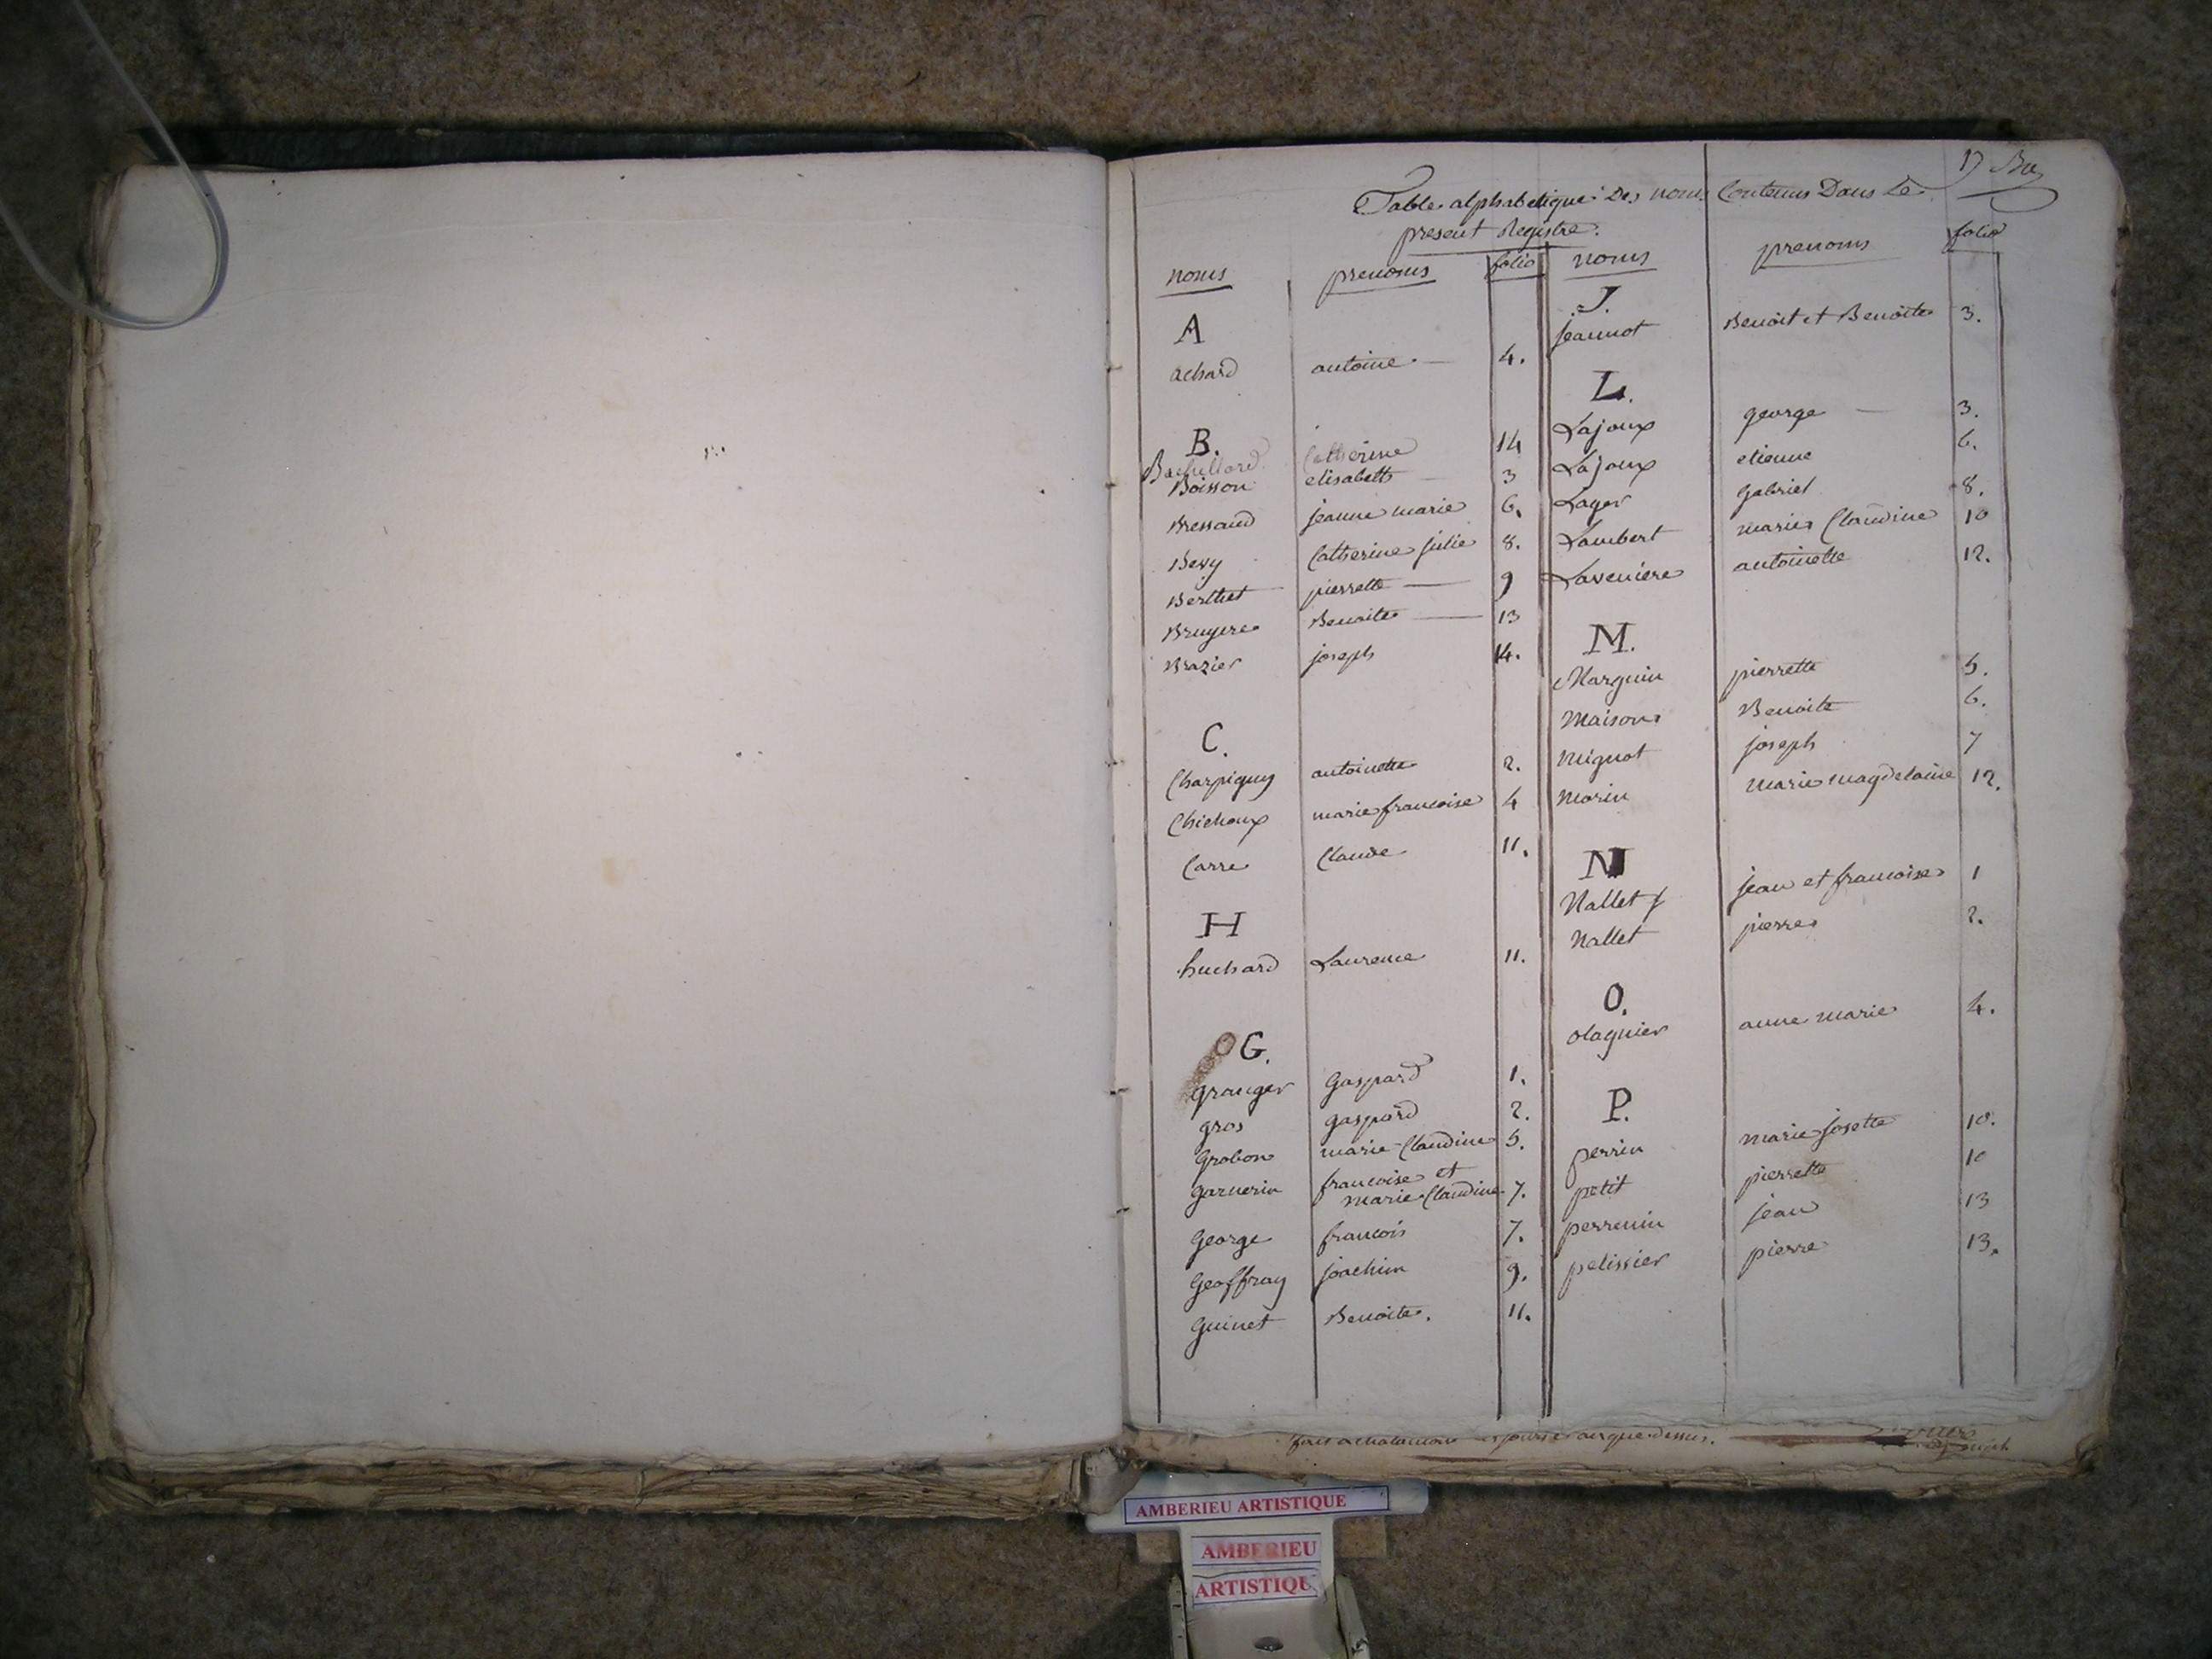 Table alphabetique Des noms Contenus Dans Le
present Registre.
noms prenoms folio
A
achard antoine 4.
B.
Catherine 14
Boisson elisabeth 3
Bressand jeanne marie 6.
Bevy Catherine julie 8.
Berthet pierrette 9
Bruyere Benoite 13
Brazier joseph 14.
C.
Charpigny antoinette 2.
Chichoux marie francoise 4
Carre Claude 11.
H
huchard Laurence 11.
G.
granger Gaspard 1.
gros gaspard 2.
Grobon marie Claudine 5.
garnerin francoise et
marie Claudine 7.
George francois 7.
Geoffray joachim 9.
Guinet Benoite. 11.
noms prenoms folio
J.
jeannot Benoit et Benoite 3.
L.
Lajoux george 3.
Lajoux etienne 6.
Lager Gabriel 8.
Lambert marie Claudine 10
Laveniere antoinette 12.
M.
Marguin pierrette 5.
Maison Benoite 6.
Mignot joseph 7
Morin Marie magdelaine 12.
N
Nallet jean et francoise 1
Nallet pierre 2.
O.
olagnier anne marie 4.
P.
perrin Marie josette 10.
petit pierrette 10
perrenin jean 13
pelissier pierre 13.
AMBERIEU ARTISTIQUE
AMBERIEU
ARTISTIQU